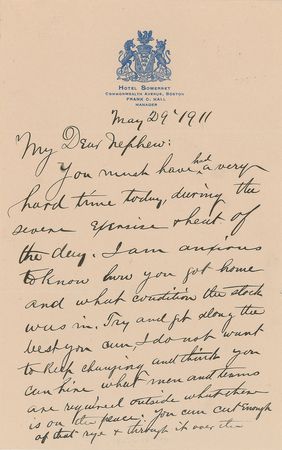 Hotel Somerset
Commonwealth Avenue, Boston
Frank C. Hall
Manager
May 29" 1911
My Dear Nephew:
You much have had a very
hard time today, during the
severe exersise & heat of
the day. I am anxious
to know how you got home
and what condition the stock
was in. Try and get along the
best you can I do not want
to keep changing and think you
can hire what men and teams
are required outside what there
is on the place. You can cut enough
of that rye & through it over the